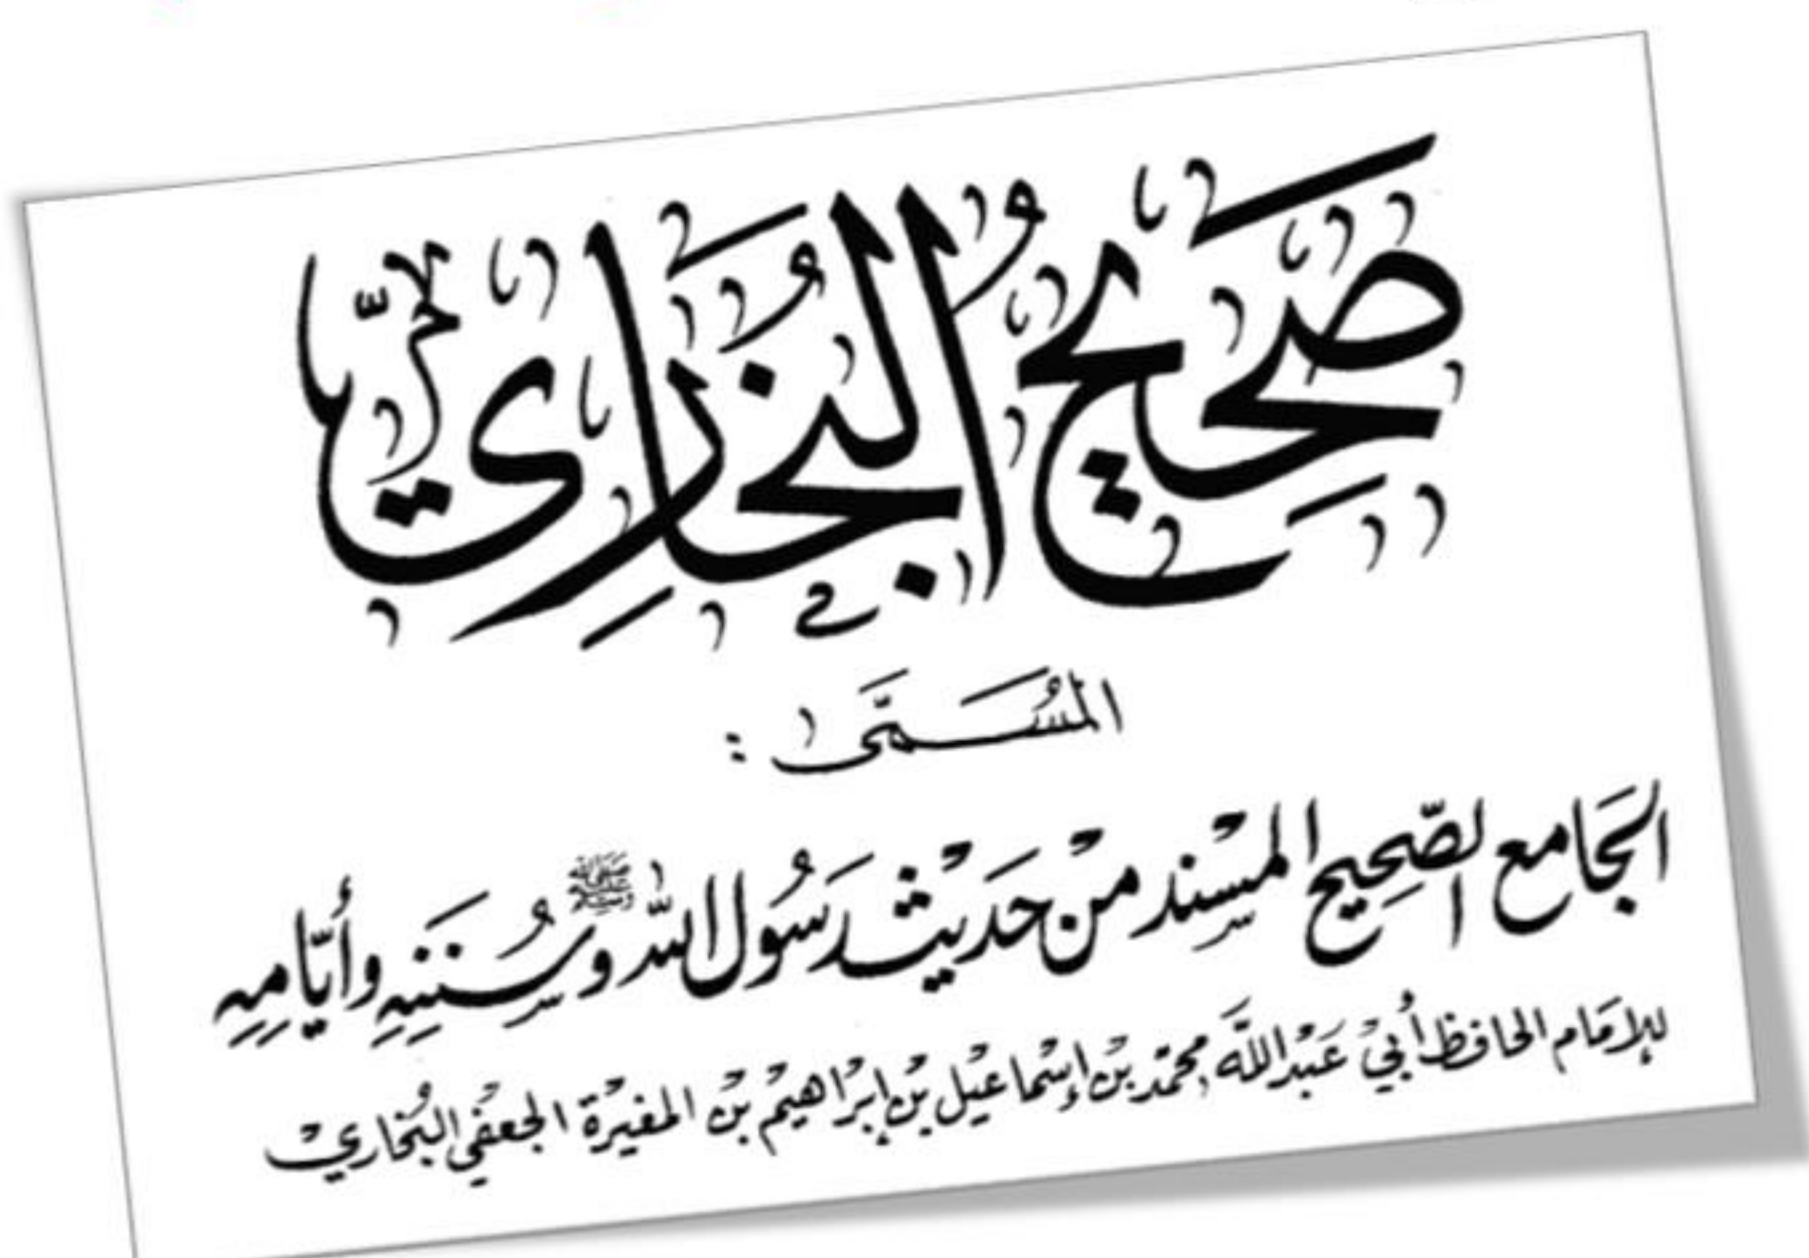 صَحِيحُ البُخَارِيّ
المُسَمَّى :
الجَامع الصَّحِيح المسْند منْ حَديْث رَسُول الله ﷺ وسُنَنِهِ وأيَّامِهِ
للإمَام الحافظ أبيْ عَبْدالله محمّد بنْ إسْماعيْل بنْ إبْراهيْم بنْ المغيْرة الجعفْي البُخاريْ